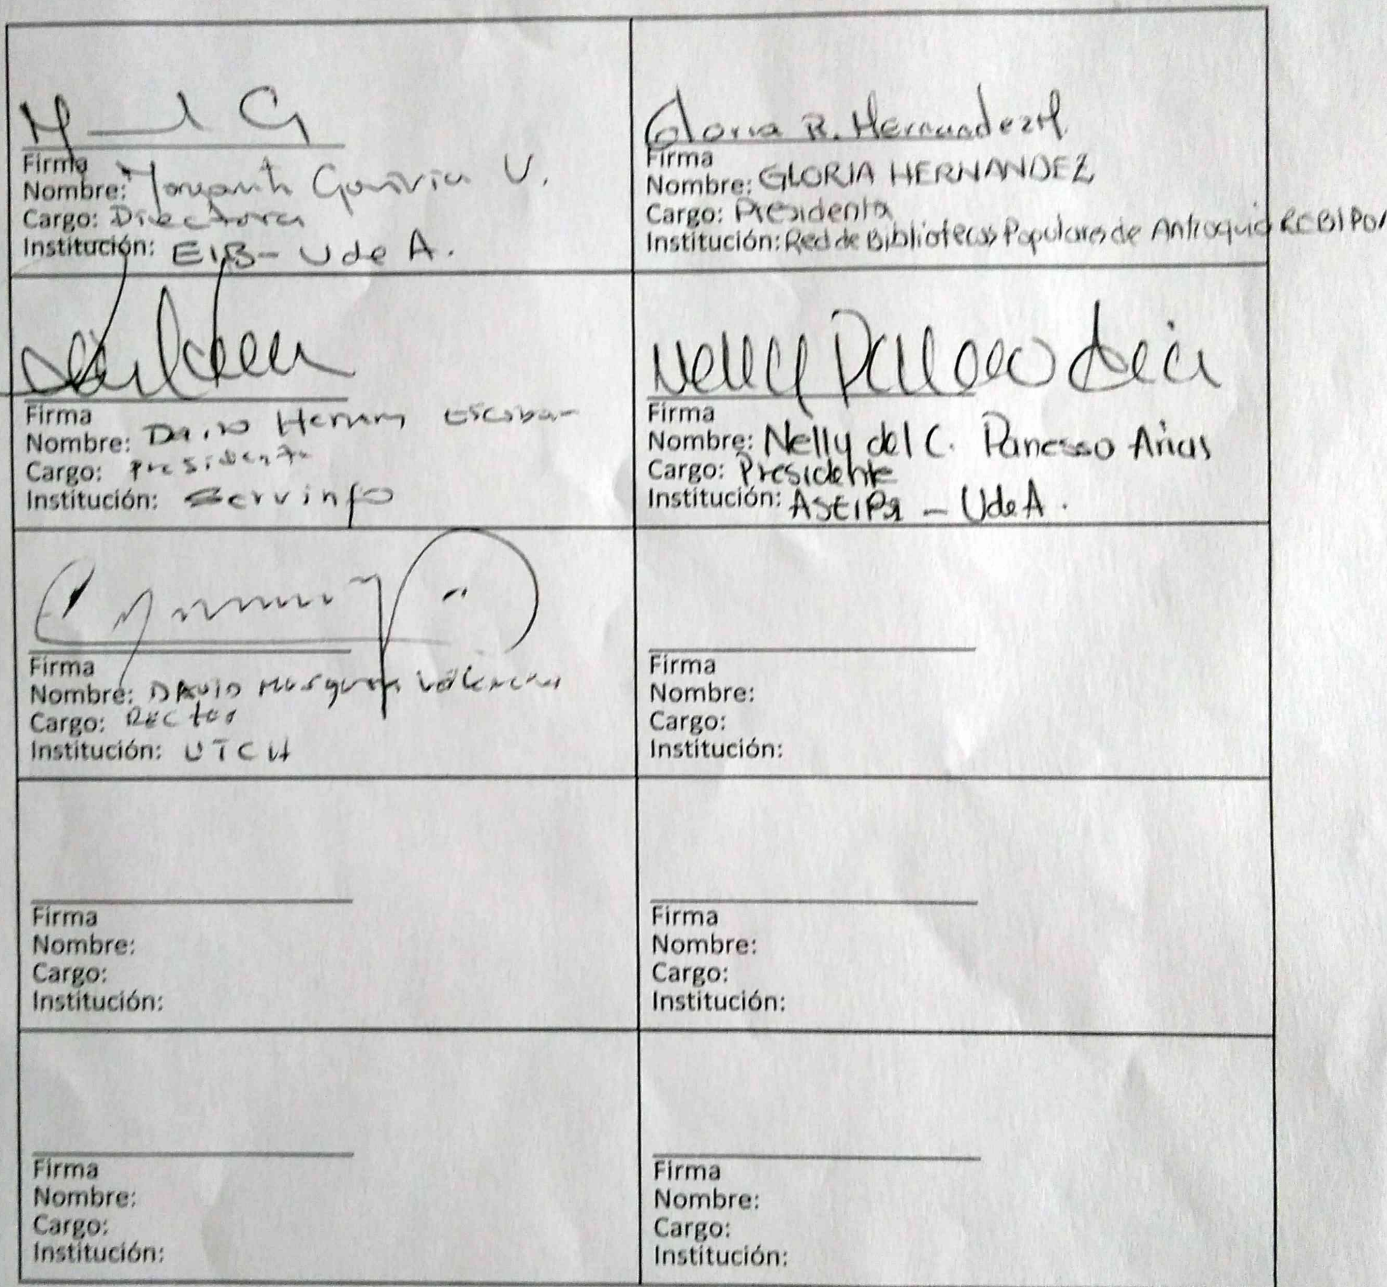 Firma
Nombre: Gaviria U.
Cargo: Directora
Institución: EIB - UdeA.
Gloria R. Hernandez H
Firma
Nombre: GLORIA HERNANDEZ
Cargo: Presidenta
Institución: Red de Bibliotecas Populares de Antioquia REBIPOA
Firma
Nombre: Dario Hernan Escobar
Cargo: Presidente
Institución: Servinfo
Nelly
Firma
Nombre: Nelly del C. Panesso Arias
Cargo: Presidente
Institución: ASEIBI - UdeA.
Firma
Nombre: DAVID Mosquera Valencia
Cargo: Rector
Institución: UTCH
Firma
Nombre:
Cargo:
Institución:
Firma
Nombre:
Cargo:
Institución:
Firma
Nombre:
Cargo:
Institución:
Firma
Nombre:
Cargo:
Institución:
Firma
Nombre:
Cargo:
Institución: